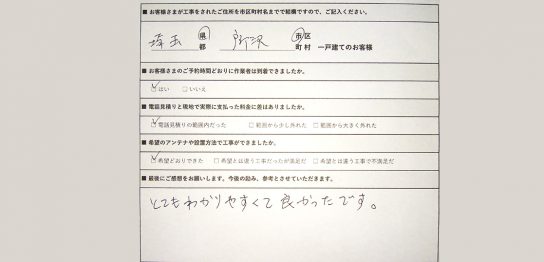 ■ お客様さまが工事をされたご住所を市区町村名までで結構ですので、ご記入ください。
埼玉 県 所沢 市 区
都 町 村 一戸建てのお客様
■ お客様さまのご予約時間どおりに作業者は到着できましたか。
☑はい □いいえ
■ 電話見積りと現地で実際に支払った料金に差はありましたか。
☑電話見積りの範囲内だった □範囲から少し外れた □範囲から大きく外れた
■ 希望のアンテナや設置方法で工事ができましたか。
☑希望どおりできた □希望とは違う工事だったが満足だ □希望とは違う工事で不満足だ
■ 最後にご感想をお願いします。今後の励み、参考とさせていただきます。
とてもわかりやすくて良かったです。